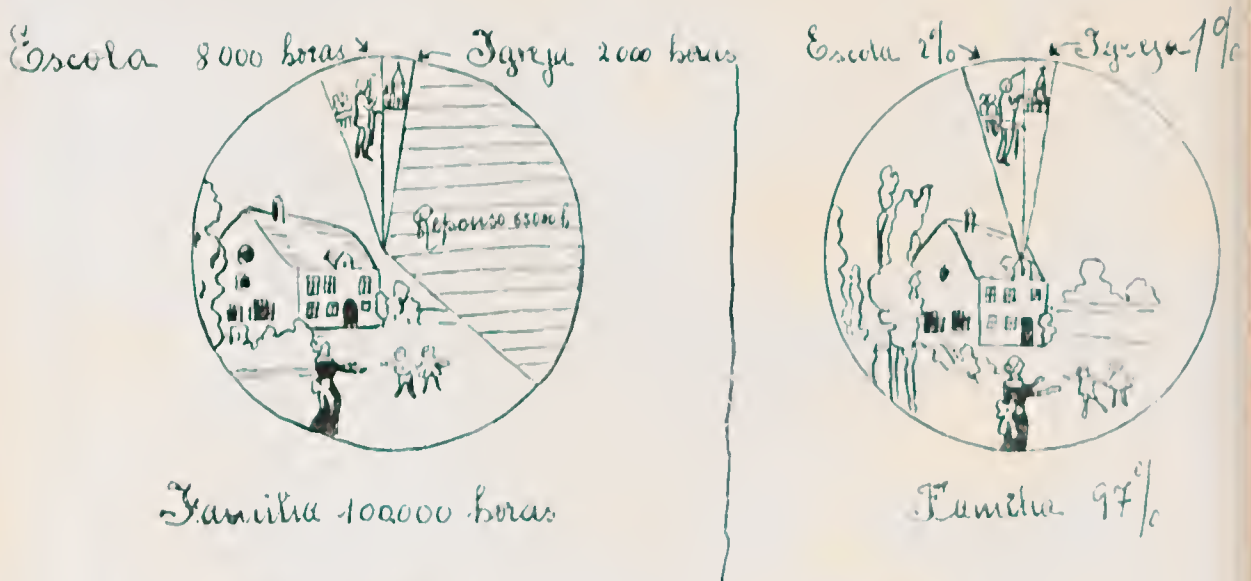 Escola 8000 horas Igreja 2000 horas
Reponso h
Familia 100.000 horas
Escola 2% Igreja 1%
Familia 97%